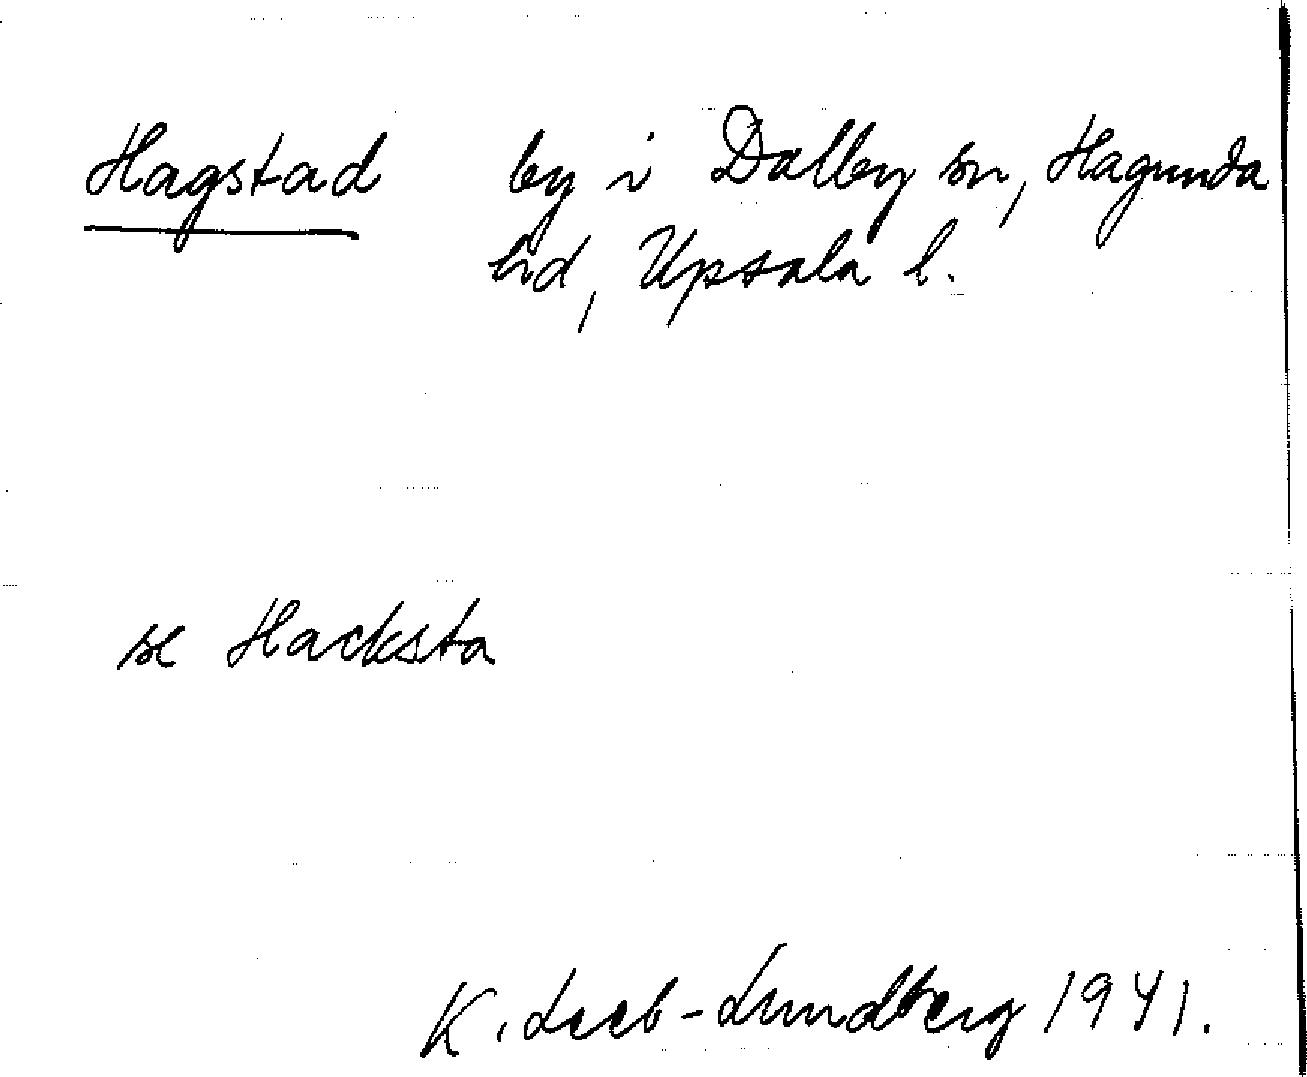 Hagstad by i Dalby sn, Hagunda
hd, Upsala l.
se Hacksta
K. Leeb-Lundberg 1941.